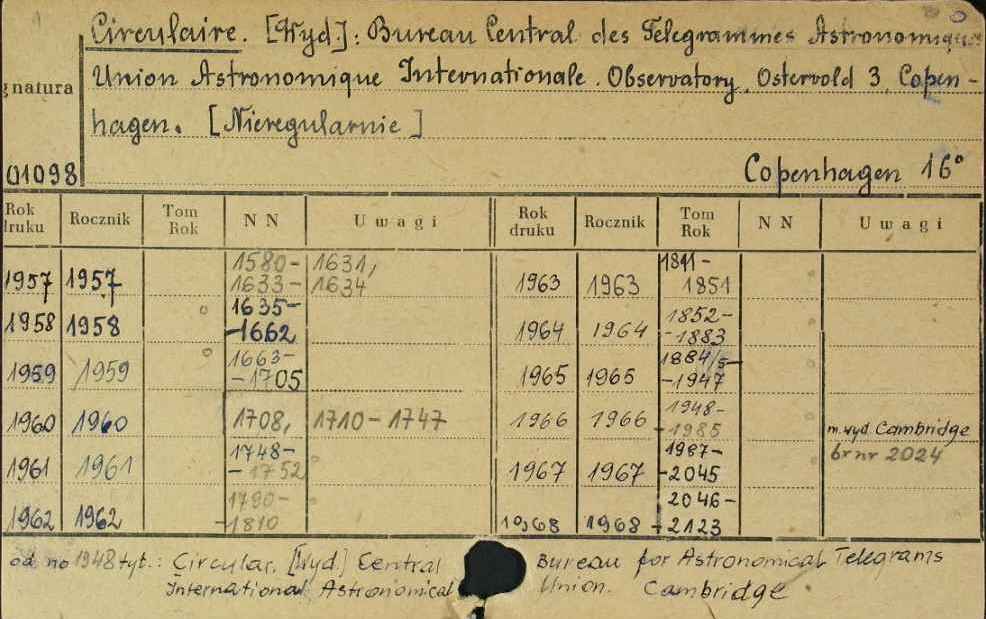 Circulaire. [Wyd.]: Bureau Central des Telegrammes Astronomiques
Union Astronomique Internationale. Observatory, Ostervold 3, Copen-
gnatura
hagen. [Nieregularnie]
01098
Copenhagen 16°
Rok druku Rocznik Tom Rok N N Uwagi Rok druku Rocznik Tom Rok N N Uwagi
1957 1957 1580- 1631, 1633- 1634 1963 1963 1841- 1851
1958 1958 1635- -1662 1964 1964 1852- -1883
1959 1959 1663- -1705 1965 1965 1884/5- -1947
1960 1960 1708, 1710-1747 1966 1966 1948- -1985 m. wyd. Cambridge
1961 1961 1748- -1752 1967 1967 1987- -2045 br nr 2024
1962 1962 1790- -1810 1968 1968 2046- -2123
od no 1948 tyt.: Circular. [Wyd] Central Bureau for Astronomical Telegrams
International Astronomical Union. Cambridge